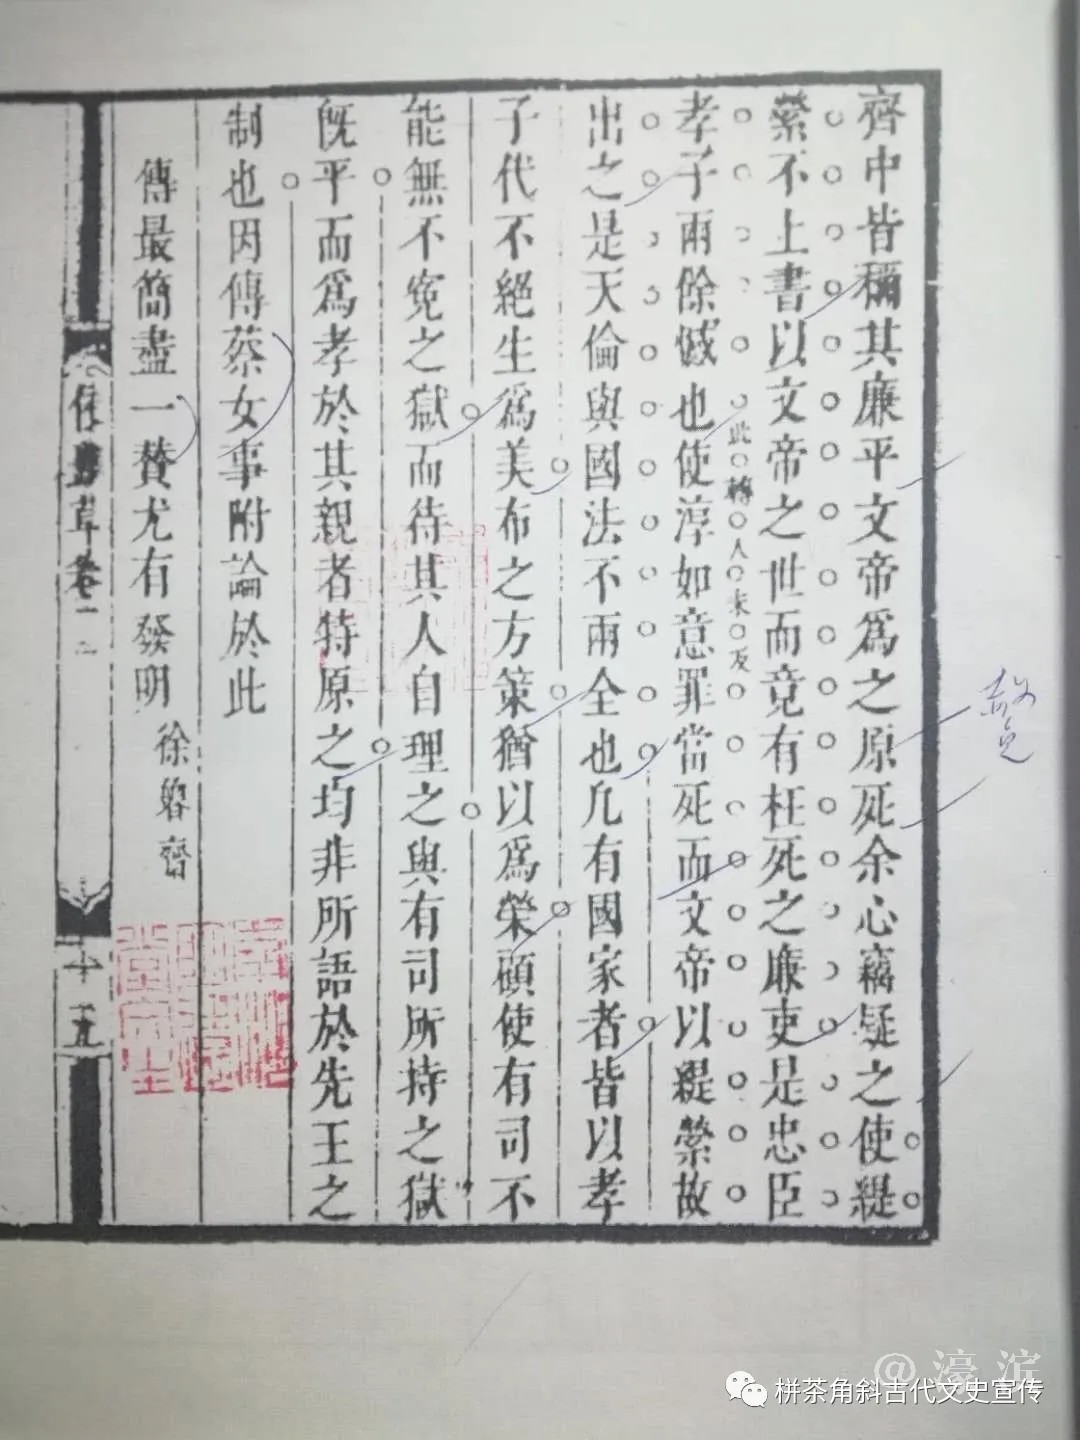 齊中皆稱其廉平文帝爲之原死余心竊疑之使緹
縈不上書以文帝之世而竟有枉死之廉吏是忠臣
此轉人未及
孝子兩餘憾也使淳如意罪當死而文帝以緹縈故
出之是天倫與國法不兩全也凡有國家者皆以孝
子代不絕生爲美布之方策猶以爲榮頋使有司不
能無不寃之獄而待其人自理之與有司所持之獄
旣平而爲孝於其親者特原之均非所語於先王之
制也因傳蔡女事附論於此
傳最簡盡一贊尤有發明
十五
栟茶角斜古代文史宣传
@濠滨